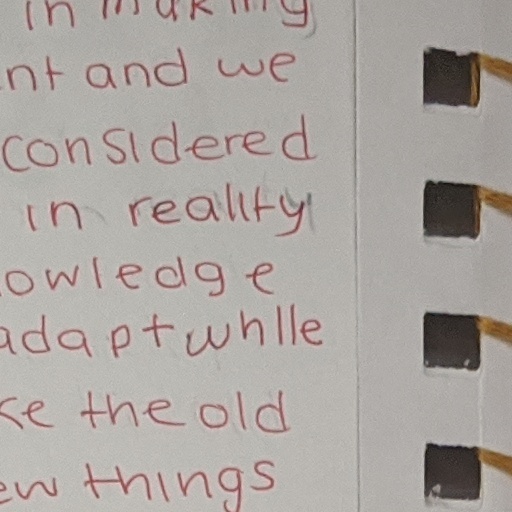 in making
nt and we
considered
in reality
owledge
adapt while
ke the old
ew things